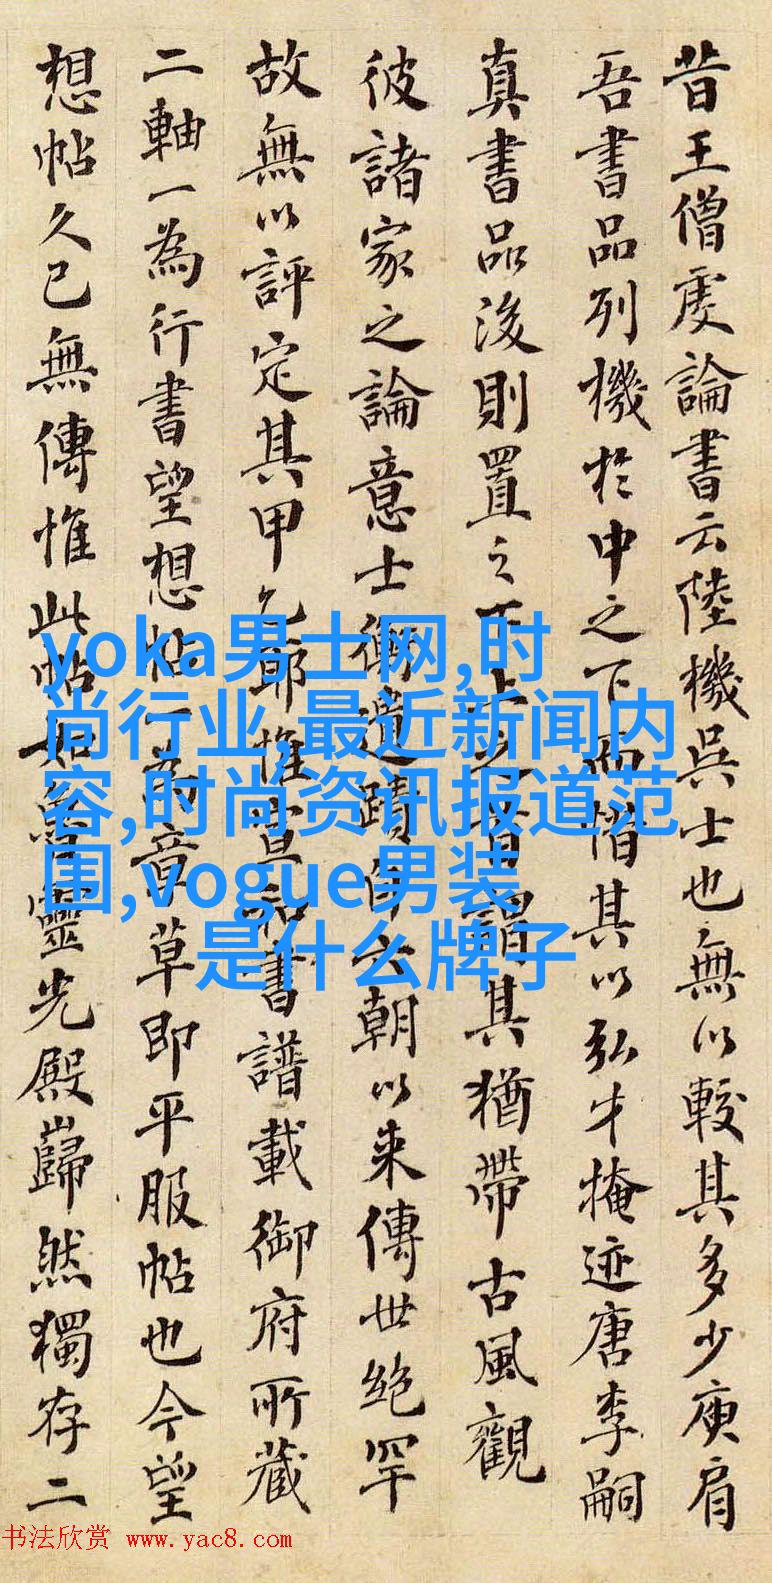 昔王僧虔論書云陸機吳士也無以較其多少庾肩
吾書品列機於中之下而惜其以弘才掩迹唐李嗣
真書品後則置之下上之首謂其猶帶古風觀
彼諸家之論意士衡遺蹟自六朝以来傳世絶罕
故無以評定其甲乙耶惟宣和書譜載御府所藏
二軸一為行書望想帖一為章草即平服帖也今望
想帖久已無傳惟此帖如魯靈光殿巋然獨存二
yoka男士网,时
尚行业,最近新闻内
容,时尚资讯报道范
围,vogue男装
是什么牌子
书法欣赏 www.yac8.com